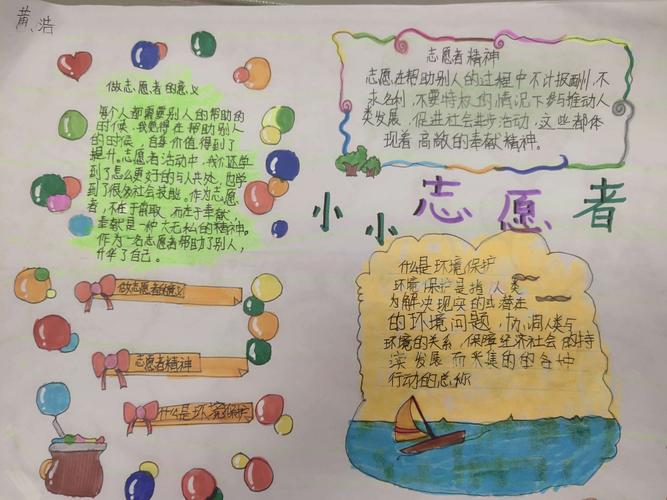 黄浩
做志愿者的意义
每个人都需要别人的帮助的
时候，我觉得在帮助别人
的时候，自身价值得到了
提升。志愿者活动中，我们还学
到了怎么更好的与人共处，也学
到了很多社会技能。作为志愿
者，不在于索取，而在于奉献，
奉献是一种大无私的精神。
作为一名志愿者帮助了别人，
升华了自己。
志愿者精神
志愿在帮助别人的过程中不计报酬，不
求名利，不要特权的情况下参与推动人
类发展，促进社会进步活动，这些都体
现着高敞的奉献精神。
小小志愿者
做志愿者的意义
志愿者精神
什么是环境保护
什么是环境保护
环境保护是指人类
为解决现实的或潜在
的环境问题，协调人类与
环境的关系，保障经济社会的持
续发展而采集的的各种
行动的总称